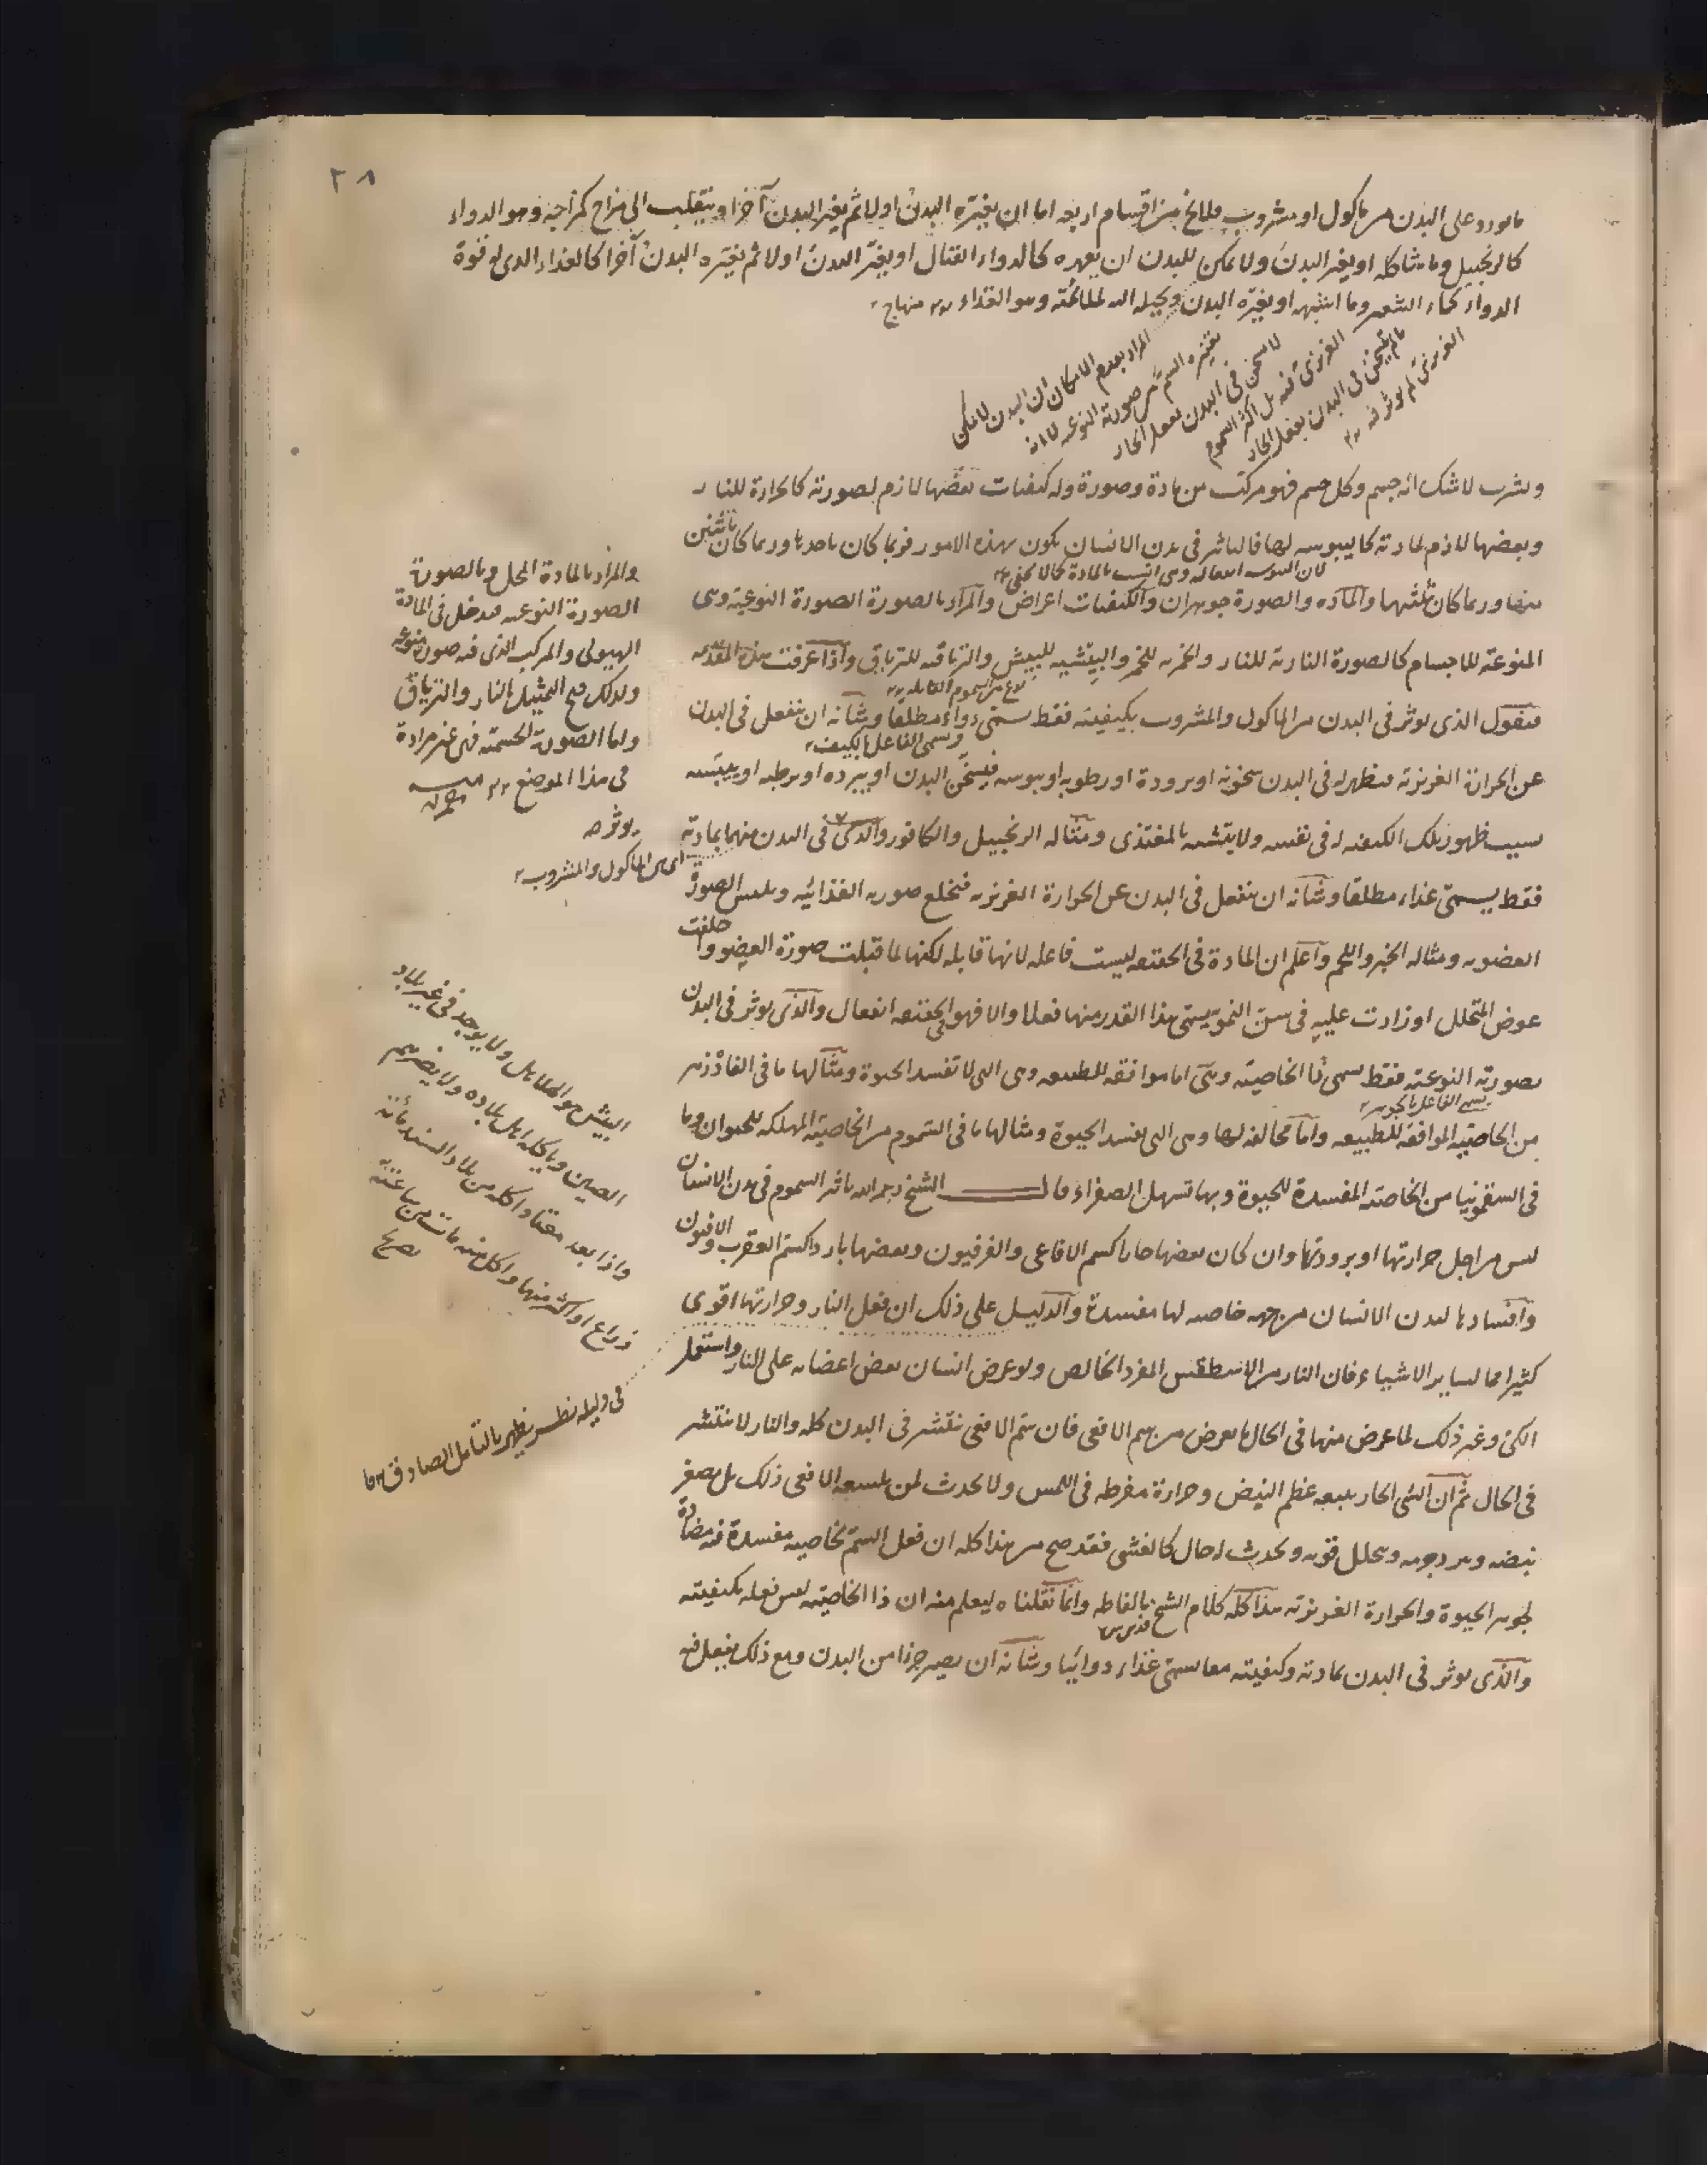 ٢٨
ما يورد على البدن من مأكول او مشروب فلا يخ من اقسام اربعه اما ان يغيّره البدن اولا ثم يغير البدن آخرا وينقلب الى مزاج كمزاجه وهو الدواء
كالزنجبيل وما شاكله او يغير البدن ولا يمكن للبدن ان يقهره كالدواء القتال او يغيّر البدن اولا ثم يغيّره البدن آخرا كالغذاء الذى له قوة
الدواء كماء الشعير وما اشبهه او يغيّره البدن ويحيله اليه لملائمته وهو الغذاء منهاج
المراد بعدم الامكان ان البدن لا يمكن
تغييره السم من صورته النوعيه لا انه
لا يسخن فى البدن بفعل الحار
الغريزى فيه بل اكثر السموم
ما لم يسخن فى البدن بفعل الحار
الغريزى لم يوثر فيه
ويشرب لا شك انه جسم وكل جسم فهو مركب من مادة وصورة وله كيفيات بعضها لازم لصورته كالحرارة للنار
وبعضها لازم لمادته كاليبوسه لها فالتاثير فى بدن الانسان يكون بهذه الامور فربما كان باحدها وربما كان باثنين
لان اليبوسه انفعاليه وهى انسب بالمادة كما لا يخفى
منها وربما كان بثلثتها والمادّه والصورة جوهران والكيفيات اعراض والمراد بالصورة الصورة النوعية وهى
المنوعة للاجسام كالصورة النارية للنار والخمريه للخمر والبيشيه للبيش والترياقيه للترياق واذا عرفت هذه المقدمه
نوع من السموم القاتله
فنقول الذى يوثر فى البدن من الماكول والمشروب بكيفيته فقط يسمى دواء مطلقا وشانه ان ينفعل فى البدن
ويسمى الفاعل بالكيف
عن الحرارة الغريزية فتظهر له فى البدن سخونه او برودة او رطوبه او يبوسه فيسخّن البدن او يبرده او يرطبه او ييبّسه
بسبب ظهور تلك الكيفيه له فى نفسه ولا يتشبه بالمغتذى ومثاله الزنجبيل والكافور والذى فى البدن منهما بمادته
فقط يسمّى غذاء مطلقا وشانه ان ينفعل فى البدن عن الحرارة الغريزيه فيخلع صوره الغذائيه ويلبس الصورة
العضويه ومثاله الخبز واللحم واعلم ان المادة فى الحقيقه ليست فاعله لانها قابله لكنها لما قبلت صورة العضو واخلفت
عوض المتحلل او زادت عليه فى سنّ النموّ يسمّى هذا القدر منها فعلا والا فهو فى الحقيقه انفعال والذى يوثر فى البدن
بصورته النوعيه فقط يسمى ذا الخاصيّه وهى اما موافقه للطبيعه وهى التى لا تفسد الحيوة ومثالها ما فى الفادزهر
يسمى الفاعل بالجوهر
من الخاصيّه الموافقه للطبيعه واما مخالفه لها وهى التى تفسد الحيوة ومثالها ما فى السموم من الخاصيّه المهلكه للحيوان وما
فى السقمونيا من الخاصيه المفسدة للحيوة وبها تسهل الصفراء قال الشيخ رحمه الله تاثير السموم فى بدن الانسان
ليس من اجل حرارتها او برودتها وان كان بعضها حارا كسم الافاعى والفرفيون وبعضها باردا كسم العقرب والافيون
وافسادها لبدن الانسان من جهه خاصيه لها مفسدة والدليل على ذلك ان فعل النار وحرارتها اقوى
كثيرا مما لساير الاشياء فان النار من الاسطقس المفرد الخالص ولو عرض انسان بعض اعضائه على النار واستعمل
الكىّ وغير ذلك لما عرض منها فى الحال ما يعرض من سم الافعى فان سم الافعى ينتشر فى البدن كله والنار لا تنتشر
فى الحال ثم ان الشى الحار يتبعه عظم النبض وحرارة مفرطه فى اللمس ولا يحدث لمن يلسعه الافعى ذلك بل يصغر
نبضه ويبرد جسمه ويتحلل قوته ويحدث له حال كالغشى فقد صح من هذا كله ان فعل السمّ بخاصيه مفسدة فيه مضادة
لجوهر الحيوة والحرارة الغريزية هذا كله كلام الشيخ بالفاظه وانما نقلناه ليعلم منه ان ذا الخاصيّه ليس فعله بكيفيته
قدس سره
والذى يوثر فى البدن بمادته وكيفيته معا يسمّى غذاء دوائيا وشانه ان يصير جزءا من البدن ومع ذلك يفعل فيه
والمراد بالمادة المحل وبالصورة
الصورة النوعيه فيدخل فى المادة
الهيولى والمركب الذى فيه صورة منوعه
ولذلك صح التمثيل بالنار والترياق
واما الصورة الجسمية فهى غير مرادة
فى هذا الموضع
يوثر صح
اى من الماكول والمشروب
البيش هو الهلاهل ولا يوجد فى غير بلاد
الصين وياكله اهل بلاده ولا يضرهم
واذا بعد مقدار اكله من بلاد السند مأئة
ذراع او اكثر منها واكل منه مات من ساعته
فى دليله نظر يظهر بالتامل الصادق